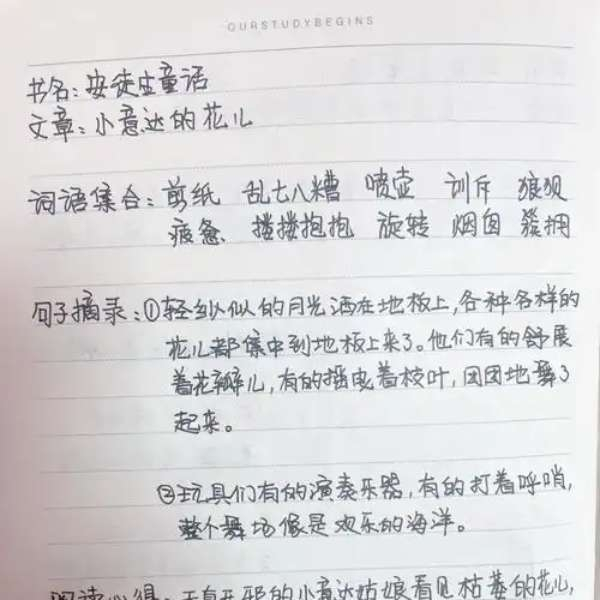 OURSTUDYBEGINS
书名：安徒生童话
文章：小意达的花儿
词语集合：剪纸 乱七八糟 喷壶 训斥 狼狈
疲惫 搂搂抱抱 旋转 烟囱 簇拥
句子摘录：①轻纱似的月光洒在地板上，各种各样的
花儿都集中到地板上来了。他们有的舒展
着花瓣儿，有的摇曳着枝叶，团团地舞了
起来。
②玩具们有的演奏乐器，有的打着呼哨，
整个舞场像是欢乐的海洋。
阅读心得：天真无邪的小意达姑娘看见枯萎的花儿，